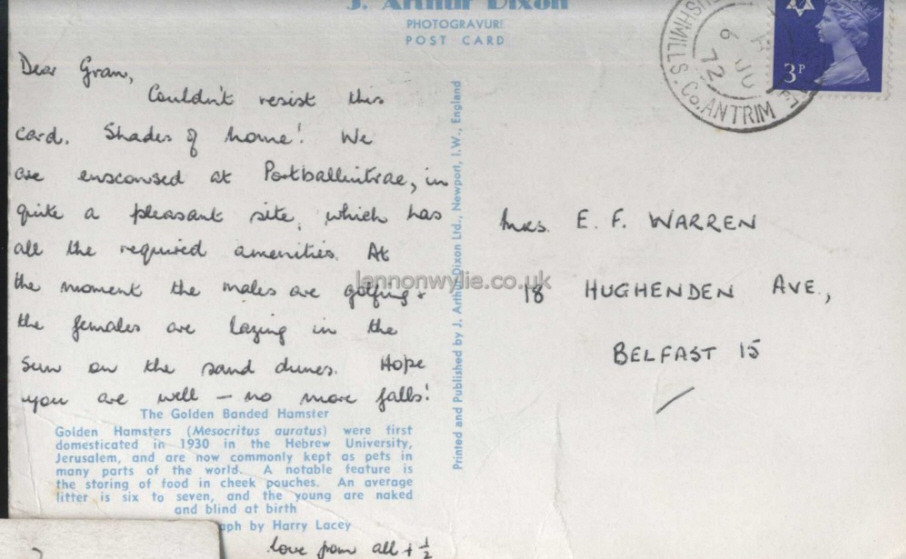 J. Arthur Dixon
PHOTOGRAVURE
POST CARD
Dear Gran,
Couldn't resist this
card. Shades of home! We
are ensconsed at Portballintrae, in
quite a pleasant site, which has
all the required amenities. At
the moment the males are golfing &
the females are lazing in the
sun on the sand dunes. Hope
you are well – no more falls!
The Golden Banded Hamster
Golden Hamsters (Mesocritus auratus) were first
domesticated in 1930 in the Hebrew University,
Jerusalem, and are now commonly kept as pets in
many parts of the world. A notable feature is
the storing of food in cheek pouches. An average
litter is six to seven, and the young are naked
and blind at birth
by Harry Lacey
love from all + ½
Printed and Published by J. Arthur Dixon Ltd., Newport, I.W., England
lennonwylie.co.uk
3P
Co. ANTRIM
9
72
Mrs. E. F. WARREN
18 HUGHENDEN AVE.,
BELFAST 15